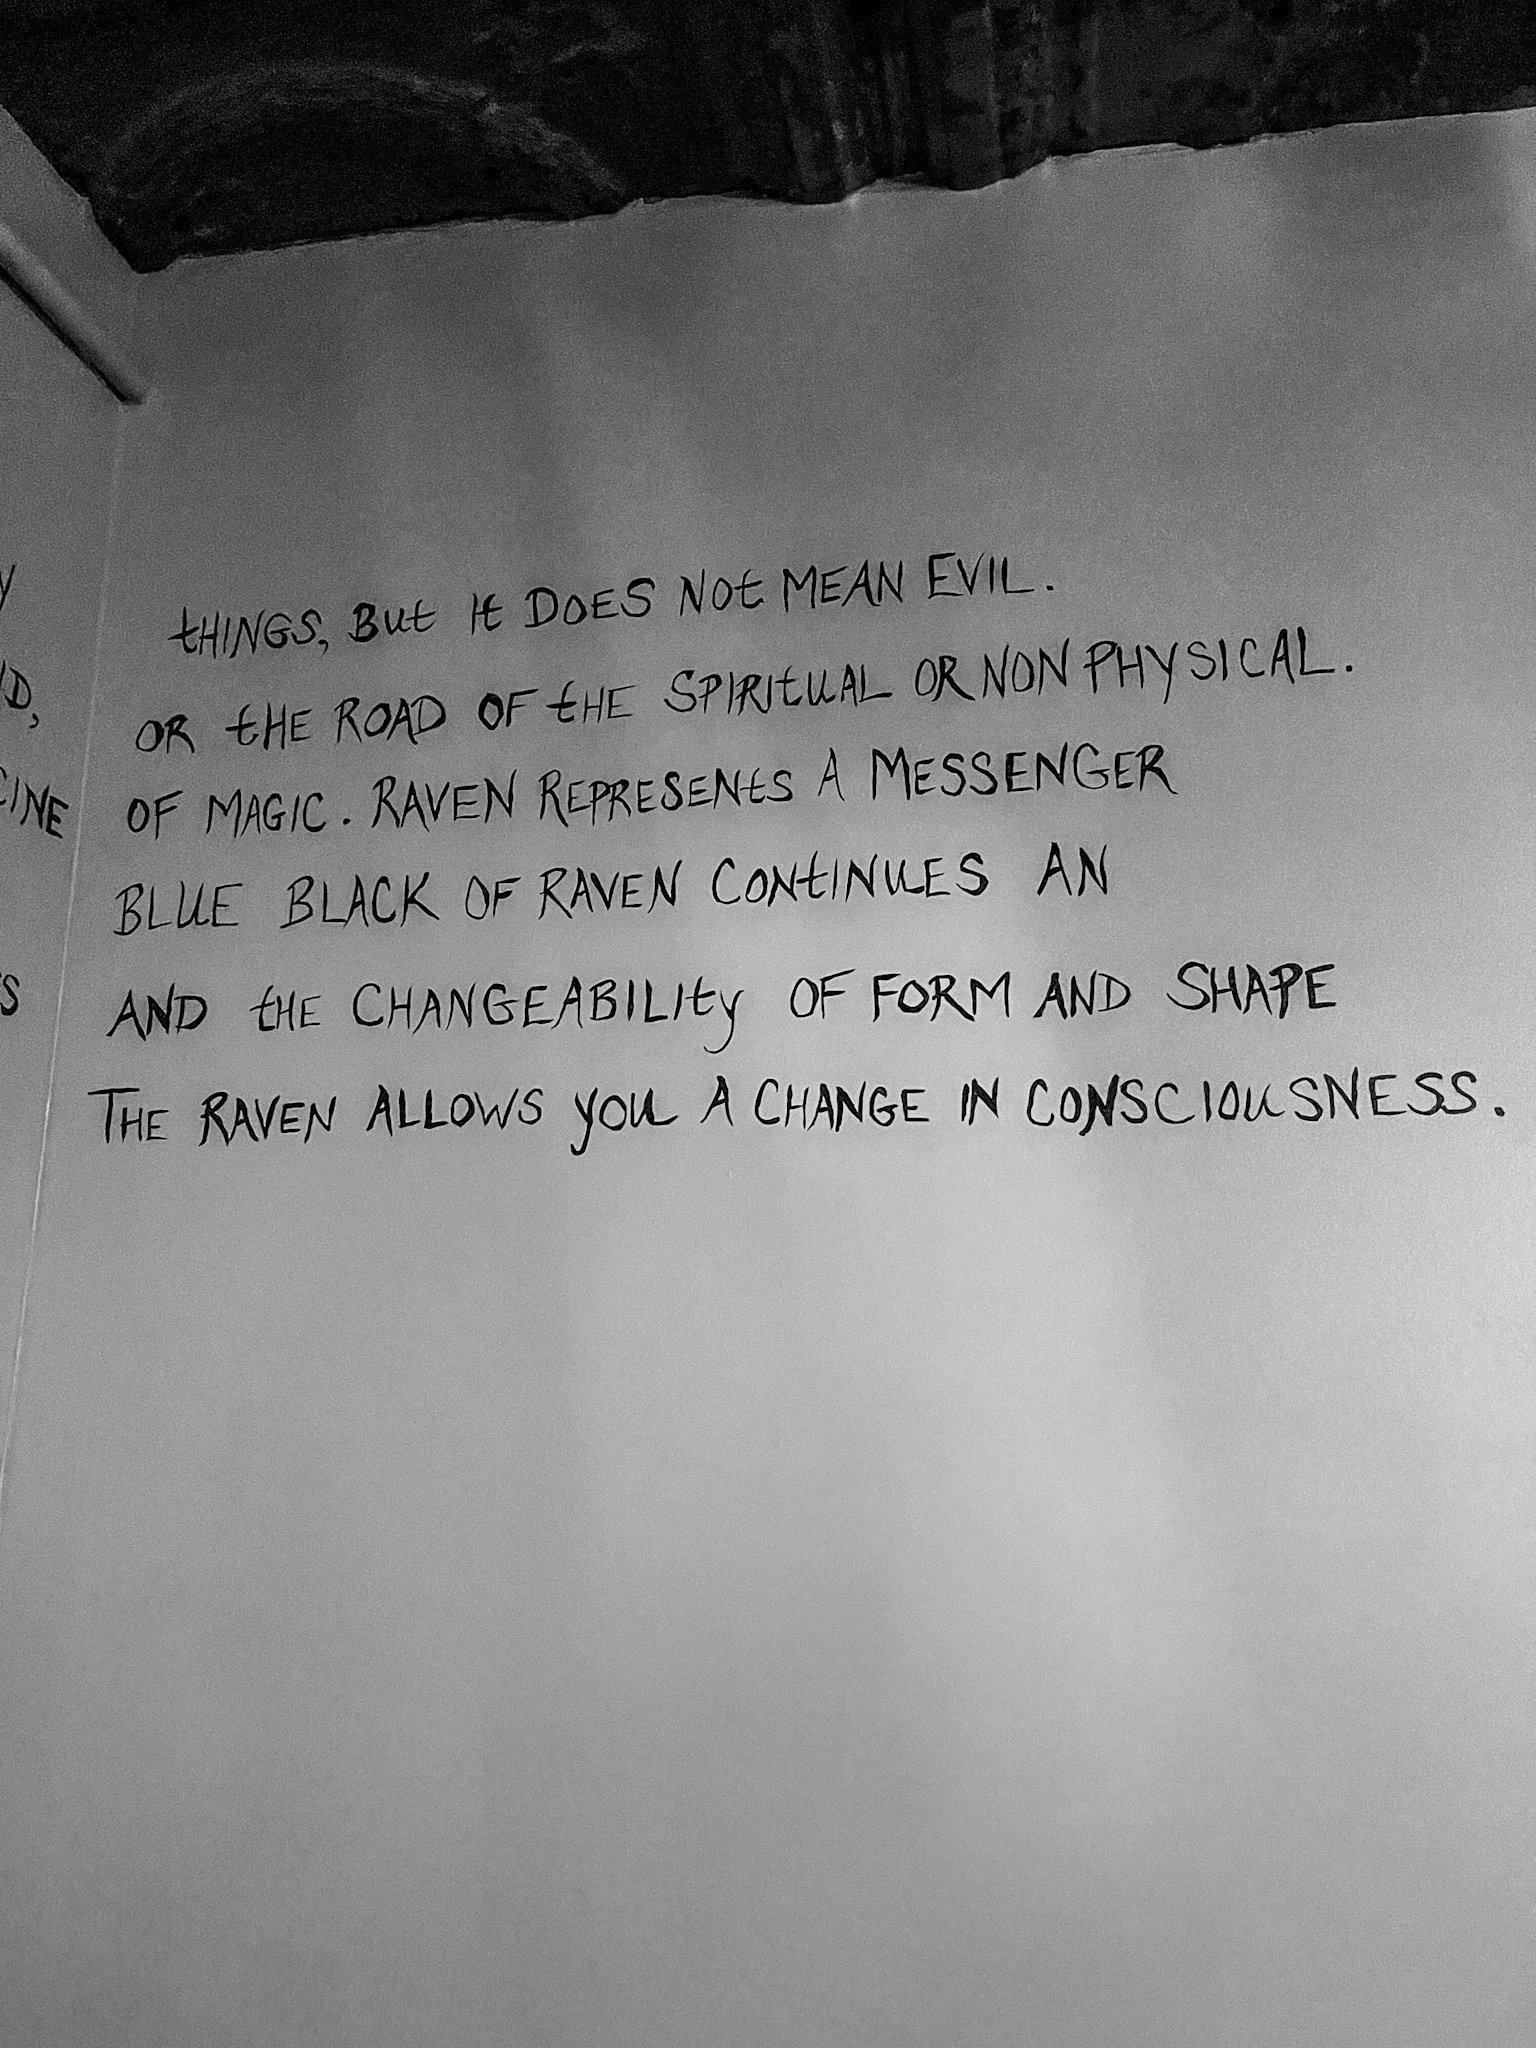 tHINGS, BUt It DOES NOt MEAN EVIL.
OR tHE ROAD OF tHE SPIRItUAL OR NON PHYSICAL.
OF MAGIC. RAVEN REPRESENtS A MESSENGER
BLUE BLACK OF RAVEN CONtINUES AN
AND tHE CHANGEABILIty OF FORM AND SHAPE
THE RAVEN ALLOWS yOU A CHANGE IN CONSCIOUSNESS.